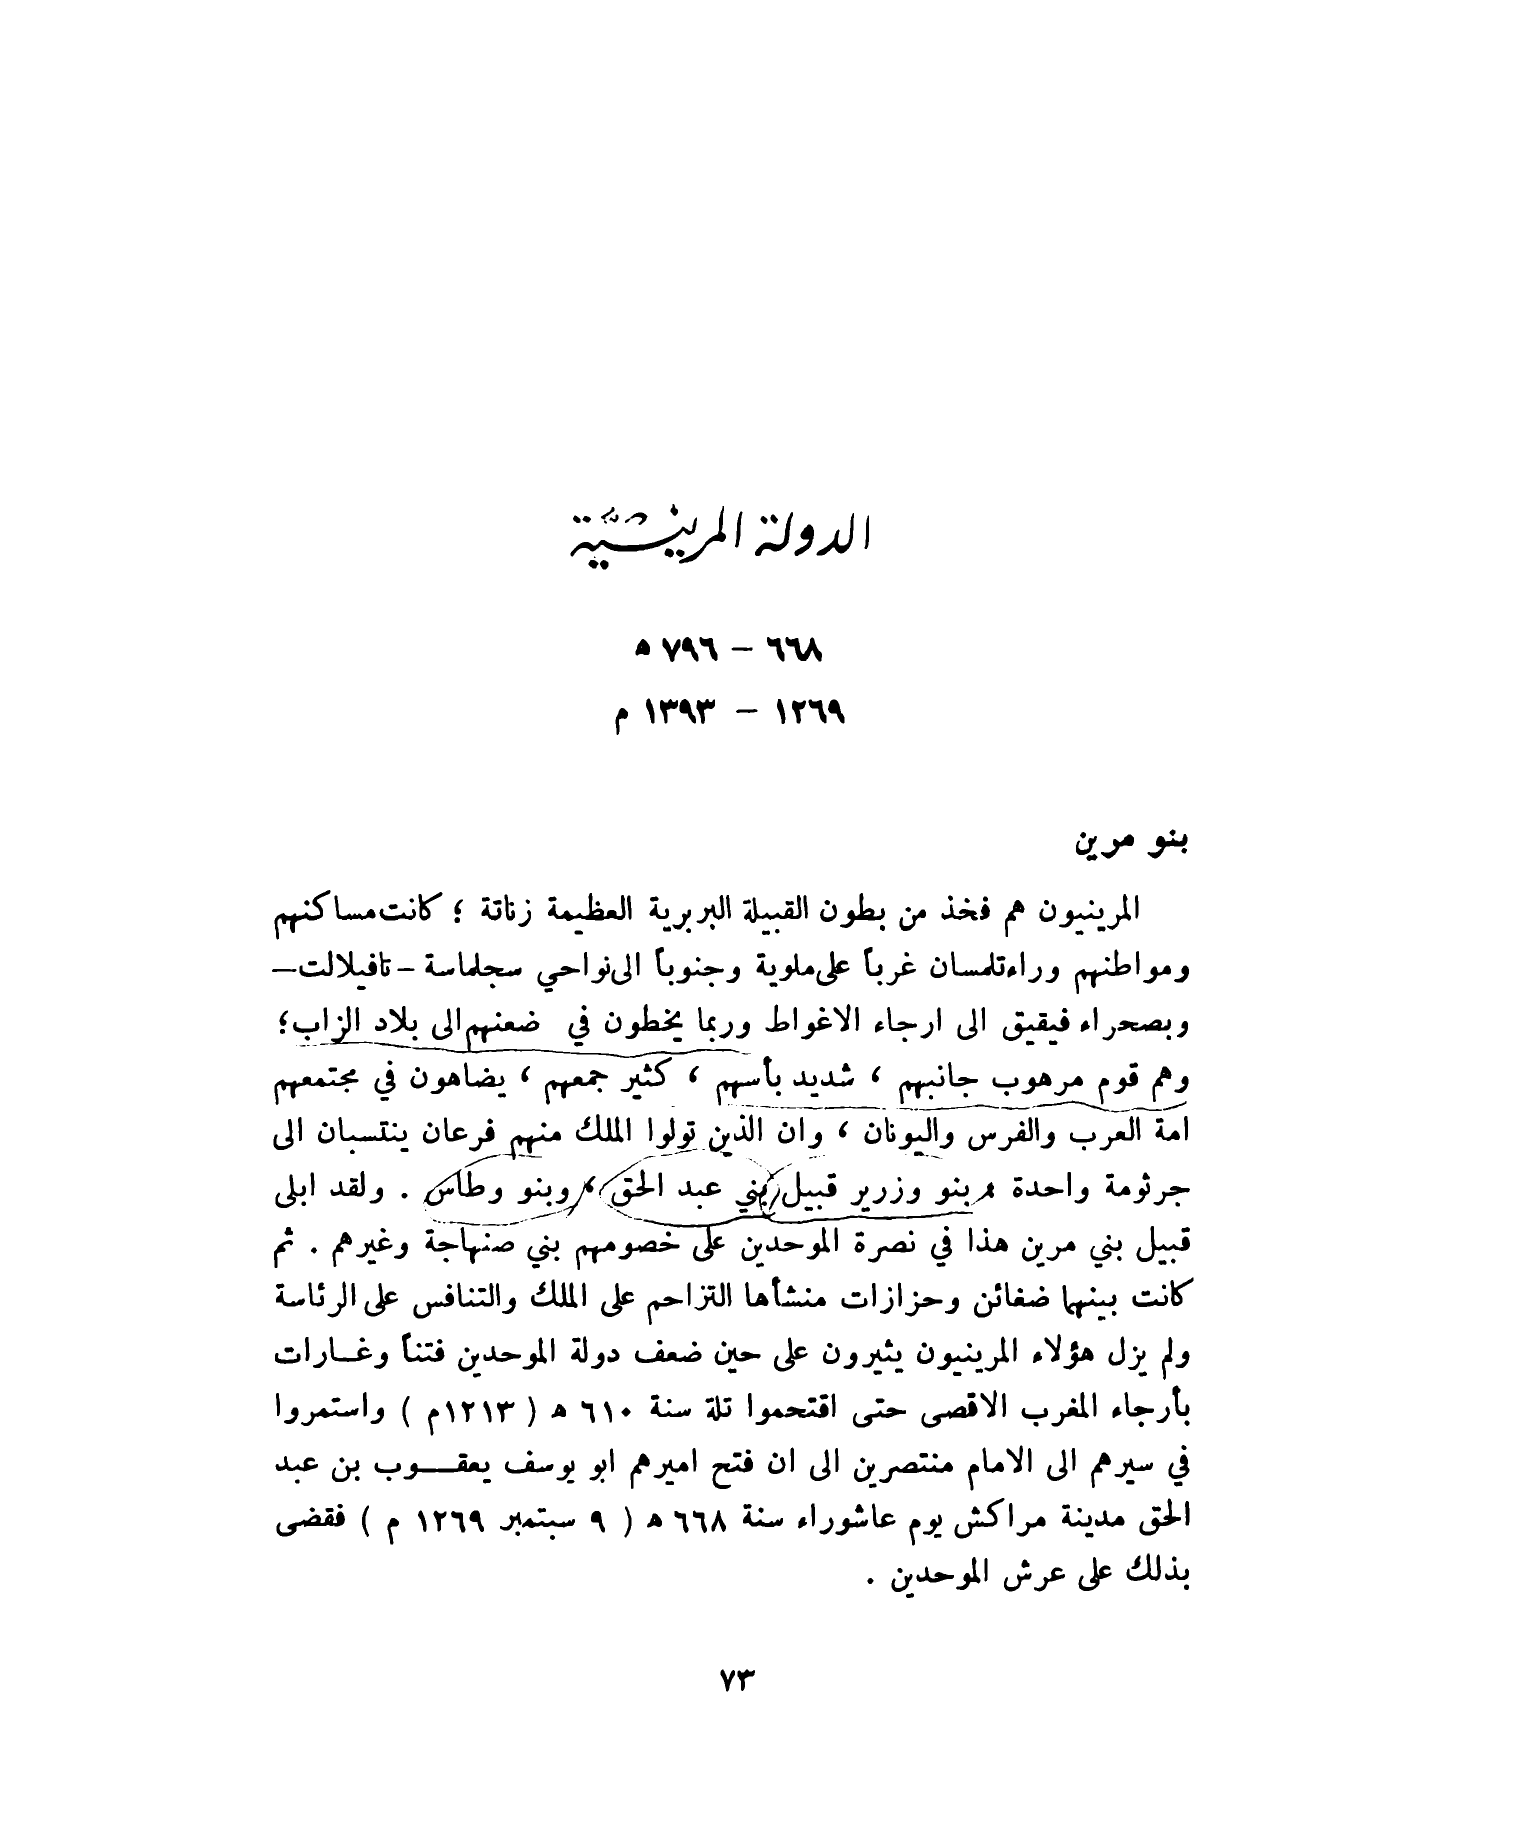 الدولة المرينيّة
٦٦٨ – ٧٩٦ ه
١٢٦٩ – ١٣٩٣ م
بنو مرين
المرينيون هم فخذ من بطون القبيلة البربرية العظيمة زناتة ؛ كانت مساكنهم
ومواطنهم وراء تلمسان غرباً على ملوية وجنوباً الى نواحي سجلماسة – تافيلالت –
وبصحراء فيقيق الى ارجاء الاغواط وربما يخطون في ضعنهم الى بلاد الزاب ؛
وهم قوم مرهوب جانبهم ، شديد بأسهم ، كثير جمعهم ، يضاهون في مجتمعهم
امة العرب والفرس واليونان ، وان الذين تولوا الملك منهم فرعان ينتسبان الى
جرثومة واحدة : بنو وزرير قبيل بني عبد الحق ، وبنو وطاس . ولقد ابلى
قبيل بني مرين هذا في نصرة الموحدين على خصومهم بني صنهاجة وغيرهم . ثم
كانت بينهما ضغائن وحزازات منشأها التزاحم على الملك والتنافس على الرئاسة
ولم يزل هؤلاء المرينيون يثيرون على حين ضعف دولة الموحدين فتناً وغــارات
بأرجاء المغرب الاقصى حتى اقتحموا تلة سنة ٦١٠ ه ( ١٢١٣م ) واستمروا
في سيرهم الى الامام منتصرين الى ان فتح اميرهم ابو يوسف يعقــوب بن عبد
الحق مدينة مراكش يوم عاشوراء سنة ٦٦٨ ه ( ٩ سبتمبر ١٢٦٩ م ) فقضى
بذلك على عرش الموحدين .
٧٣